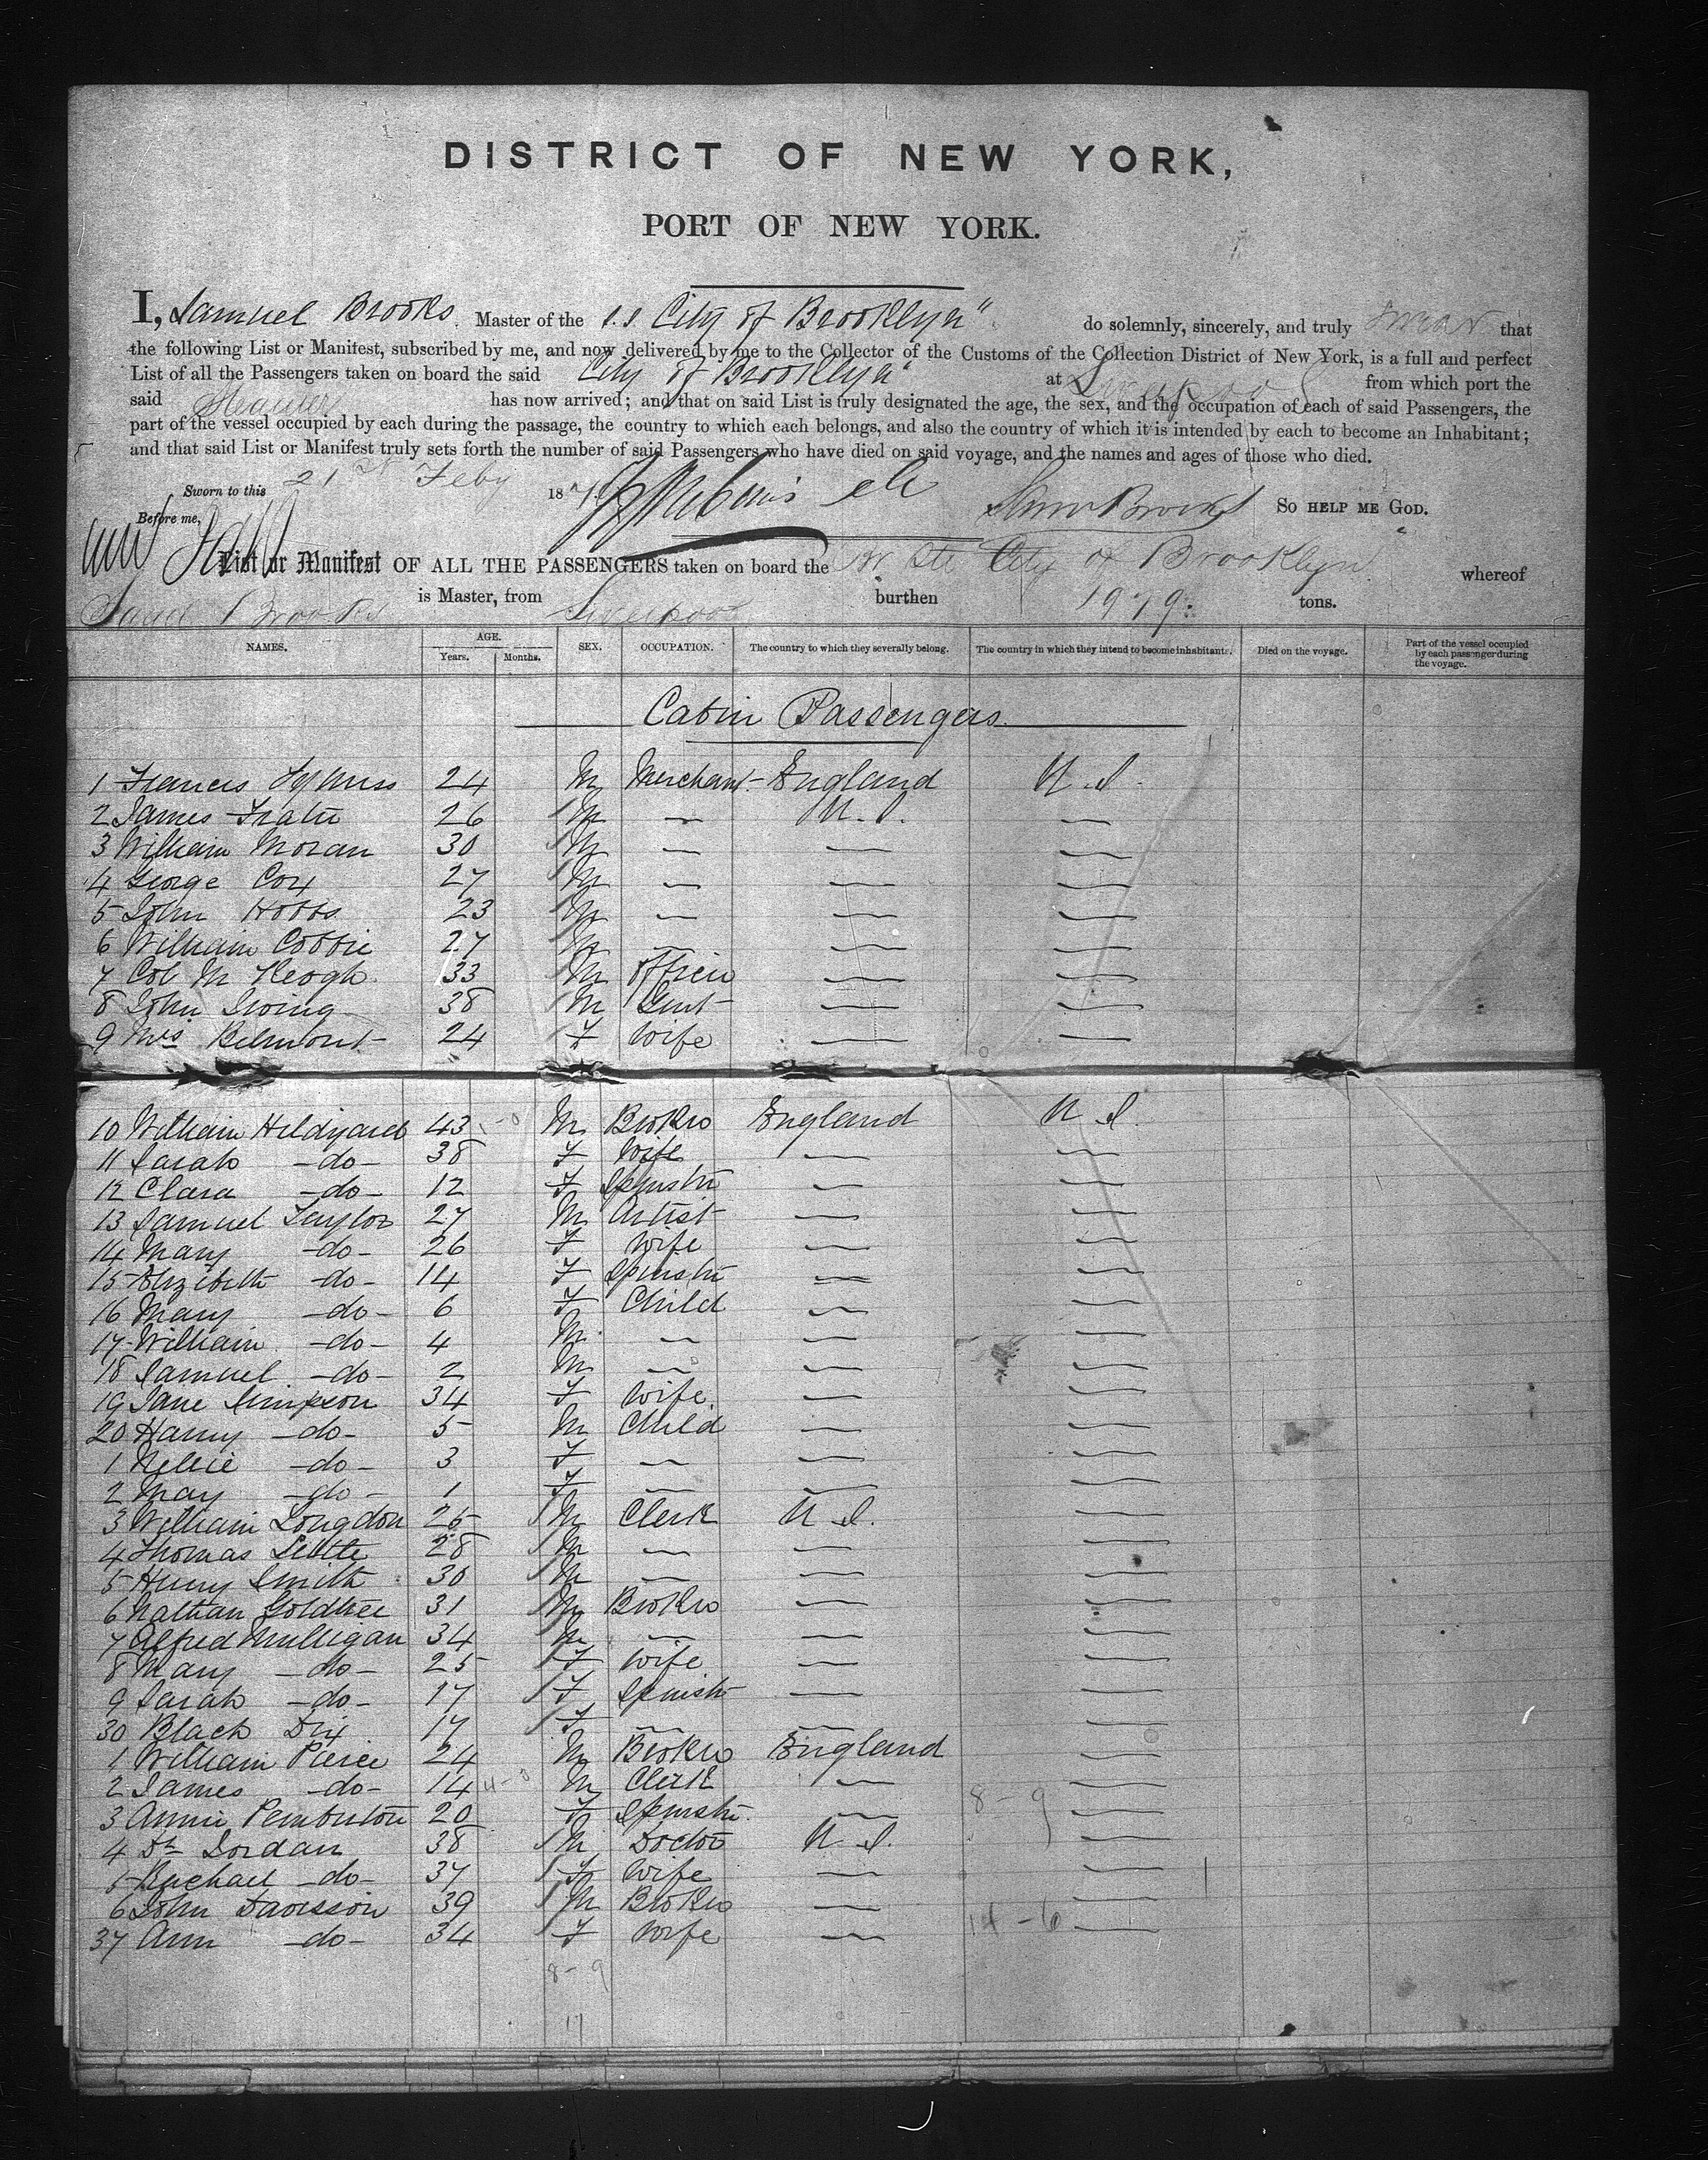 DISTRICT OF NEW YORK,
PORT OF NEW YORK.
I, Samuel Brooks. Master of the s.s "City of Brooklyn" do solemnly, sincerely, and truly swear that
the following List or Manifest, subscribed by me, and now delivered by me to the Collector of the Customs of the Collection District of New York, is a full and perfect
List of all the Passengers taken on board the said "City of Brooklyn" at Liverpool from which port the
said Steamer has now arrived; and that on said List is truly designated the age, the sex, and the occupation of each of said Passengers, the
part of the vessel occupied by each during the passage, the country to which each belongs, and also the country of which it is intended by each to become an Inhabitant;
and that said List or Manifest truly sets forth the number of said Passengers who have died on said voyage, and the names and ages of those who died.
Sworn to this 21st Feby 187 Saml Brooks SO HELP ME GOD.
Before me,
List or Manifest OF ALL THE PASSENGERS taken on board the Br Str City of Brooklyn whereof
Saml Brooks is Master, from Liverpool burthen tons.
NAMES. AGE. SEX. OCCUPATION. The country to which they severally belong. The country in which they intend to become inhabitants. Died on the voyage. Part of the vessel occupied by each passenger during the voyage.
Years. Months.
Cabin Passengers.
1 Francis 24 M Merchant England U.S.
2 James 26 M — U.S. —
3 William Moran 30 M — — —
4 George Cox 27 M — — —
5 John Hobbs 23 M — — —
6 William Cobbie 27 M — — —
7 Col M Keogh 33 M Officer — —
8 John 38 M Gent — —
9 Mrs Belmont 24 F Wife — —
10 William Hildyard 43 M Broker England U.S.
11 Sarah —do— 38 F Wife — —
12 Clara —do— 12 F Spinster — —
13 Samuel Taylor 27 M Artist — —
14 Mary —do— 26 F Wife — —
15 Elizibeth —do— 14 F Spinster — —
16 Mary —do— 6 F Child — —
17 William —do— 4 M — — —
18 Samuel —do— 2 M — — —
19 Jane Simpson 34 F Wife — —
20 Harry —do— 5 M Child — —
1 Nellie —do— 3 F — — —
2 May —do— 1 F — — —
3 William Longdon 25 M Clerk U.S. —
4 Thomas 28 M — — —
5 Henry Smith 30 M — — —
6 Nathan Goldtree 31 M Broker — —
7 Alfred Mulligan 34 M — — —
8 Mary —do— 25 F Wife — —
9 Sarah —do— 17 F Spinster — —
30 Black Dix 17 F — — —
1 William Pierce 24 M Broker England —
2 James —do— 14 M Clerk — —
3 Annie Pemberton 20 F Spinster — —
4 Dr Jordan 38 M Doctor U.S. —
5 Rachael —do— 37 F Wife — —
6 John Davisson 39 M Broker — —
37 Ann —do— 34 F Wife — —
8-9
14-6
8-9
17